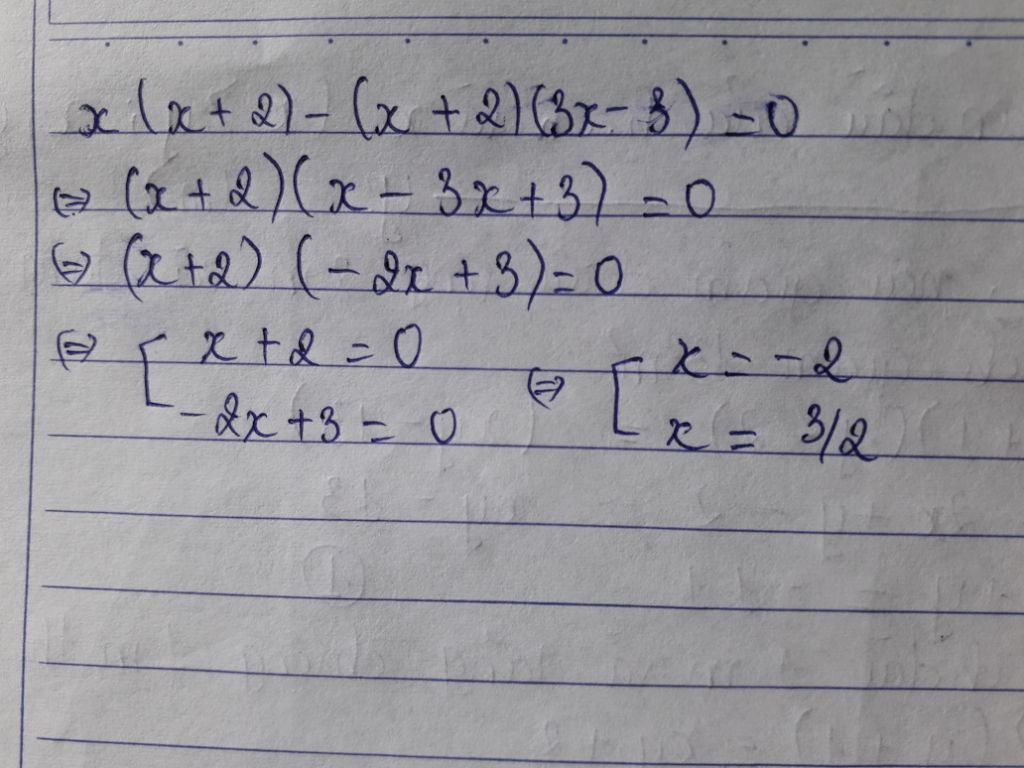 x(x+2)-(x+2)(3x-3)=0
⇔ (x+2)(x-3x+3)=0
⇔ (x+2)(-2x+3)=0
⇔ [ x+2=0 ⇔ [ x=-2
-2x+3=0 x=3/2